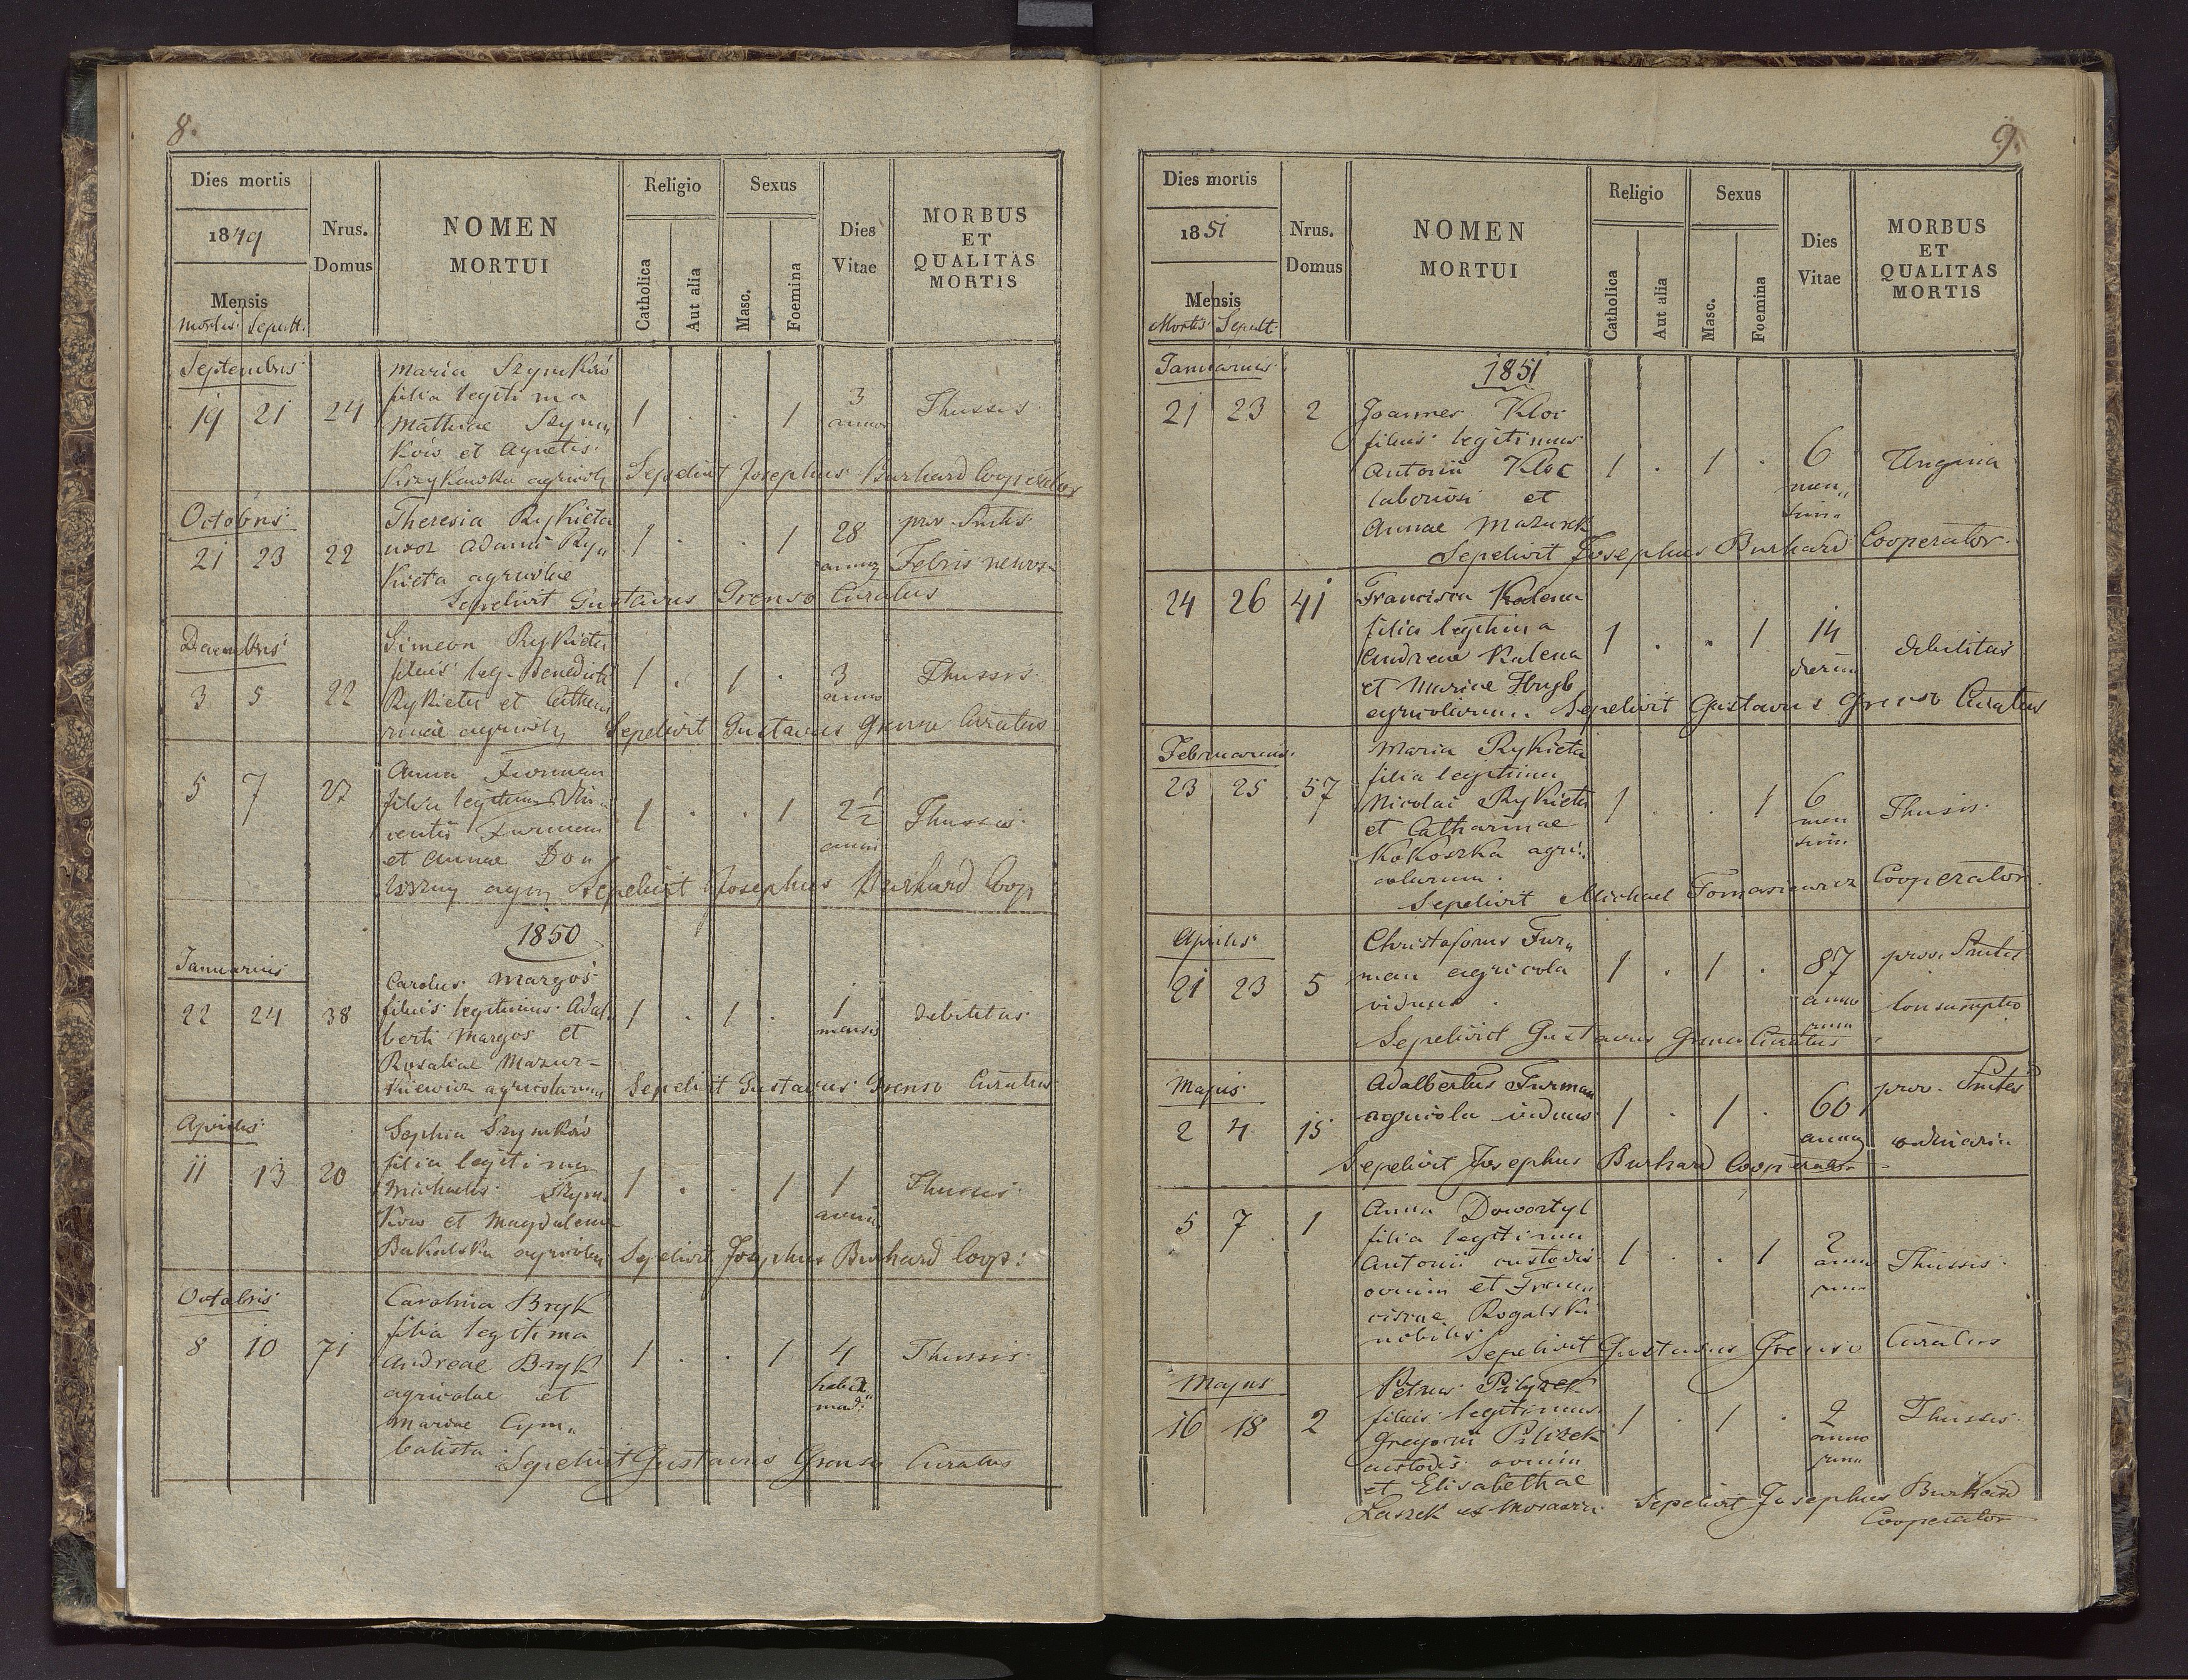 8.
Dies mortis
1849
Mensis
Mortis Sepult.
Nrus.
Domus
NOMEN
MORTUI
Religio
Catholica
Aut alia
Sexus
Masc.
Foemina
Dies
Vitae
MORBUS
ET
QUALITAS
MORTIS
Septembris
19 21 24 Maria Szymków
filia legitima
Mathiae Szym„
ków et Agnetis
agricol 1 . . 1 3 annor Thussis
Sepelivit Josephus Burhard Cooperator
Octobris
21 23 22 Theresia Rykieta
uxor Adami Ry„
kieta agricolae
1 . . 1 28 annor prov. Smtis
Febris nervosa
Sepelivit Gustavus Grenso Curatus
Decembris
3 5 22 Simeon Rykieta
filius leg. Benedicti
Rykieta et Catha
rinae agricol
1 . 1 . 3 anno Thussis
Sepelivit Gustavus Grenso Curatus
5 7 27 Anna Furman
filia legitima Vin„
centii Furman
et Annae Don
1 . . 1 2½ anni Thussis
Sepelivit Josephus Burhard Coop
1850
Januarius
22 24 38 Carolus Margos
filius legitimus Adal„
berti Margos et
Rosaliae Mazur-
kiewicz agricolarum
1 . 1 . 1 mensis debilitas
Sepelivit Gustavus Grenso Curatus
Aprilis
11 13 20 Sophia Szymków
filia legitima
Michaelis Szym„
ków et Magdalena
Bakalska agricolar
1 . . 1 1 anni Thussis
Sepelivit Josephus Burhard Coop:
Octobris
8 10 71 Carolina Bryk
filia legitima
Andreae Bryk
agricolae et
Mariae Cym„
balista
1 . . 1 4 hebd„
mad: Thussis
Sepelivit Gustavus Grenso Curatus
9.
Dies mortis
1851
Mensis
Mortis Sepult.
Nrus.
Domus
NOMEN
MORTUI
Religio
Catholica
Aut alia
Sexus
Masc.
Foemina
Dies
Vitae
MORBUS
ET
QUALITAS
MORTIS
1851
Januarius
21 23 2 Joannes Kloc
filius legitimus
Antonii Kloc
laboriosi et
Annae Mazurek
1 . 1 . 6 men„
sium Angina
Sepelivit Josephus Burhard Cooperator.
24 26 41 Francisca Kalena
filia legitima
Andreae Kalena
et Mariae
agricolarum.
1 . . 1 14 dierum debilitas
Sepelivit Gustavus Grenso Curatus
Februarius
23 25 57 Maria Rykieta
filia legitima
Nicolai Rykieta
et Catharinae
Kokoszka agri„
colarum.
1 . . 1 6 men
sium Thussis
Sepelivit Michael Tomasiewicz Cooperator
Aprilis
21 23 5 Christoforus Fur„
man agricola
viduus.
1 . 1 . 87 anno
rum prov. Smtis
Consumptio
Sepelivit Gustavus Grenso Curatus
Majus
2 4 15 Adalbertus Furman
agricola viduus
1 . 1 . 60 annor prov. Smtis
ordinaria
Sepelivit Josephus Burhard Cooperator
5 7 1 Anna Dowortyl
filia legitima
Antonii custodis
ovium et Fran„
ciscae Rogalski
nobilis
1 . . 1 2 anno
rum Thussis
Sepelivit Gustavus Grenso Curatus
Majus
16 18 2 Petrus Pilszek
filius legitimus
Gregorii Pilszek
custodis ovium
et Elisabethae
Laszek ex
1 . 1 . 2 anno
rum Thussis
Sepelivit Josephus Burhard
Cooperator